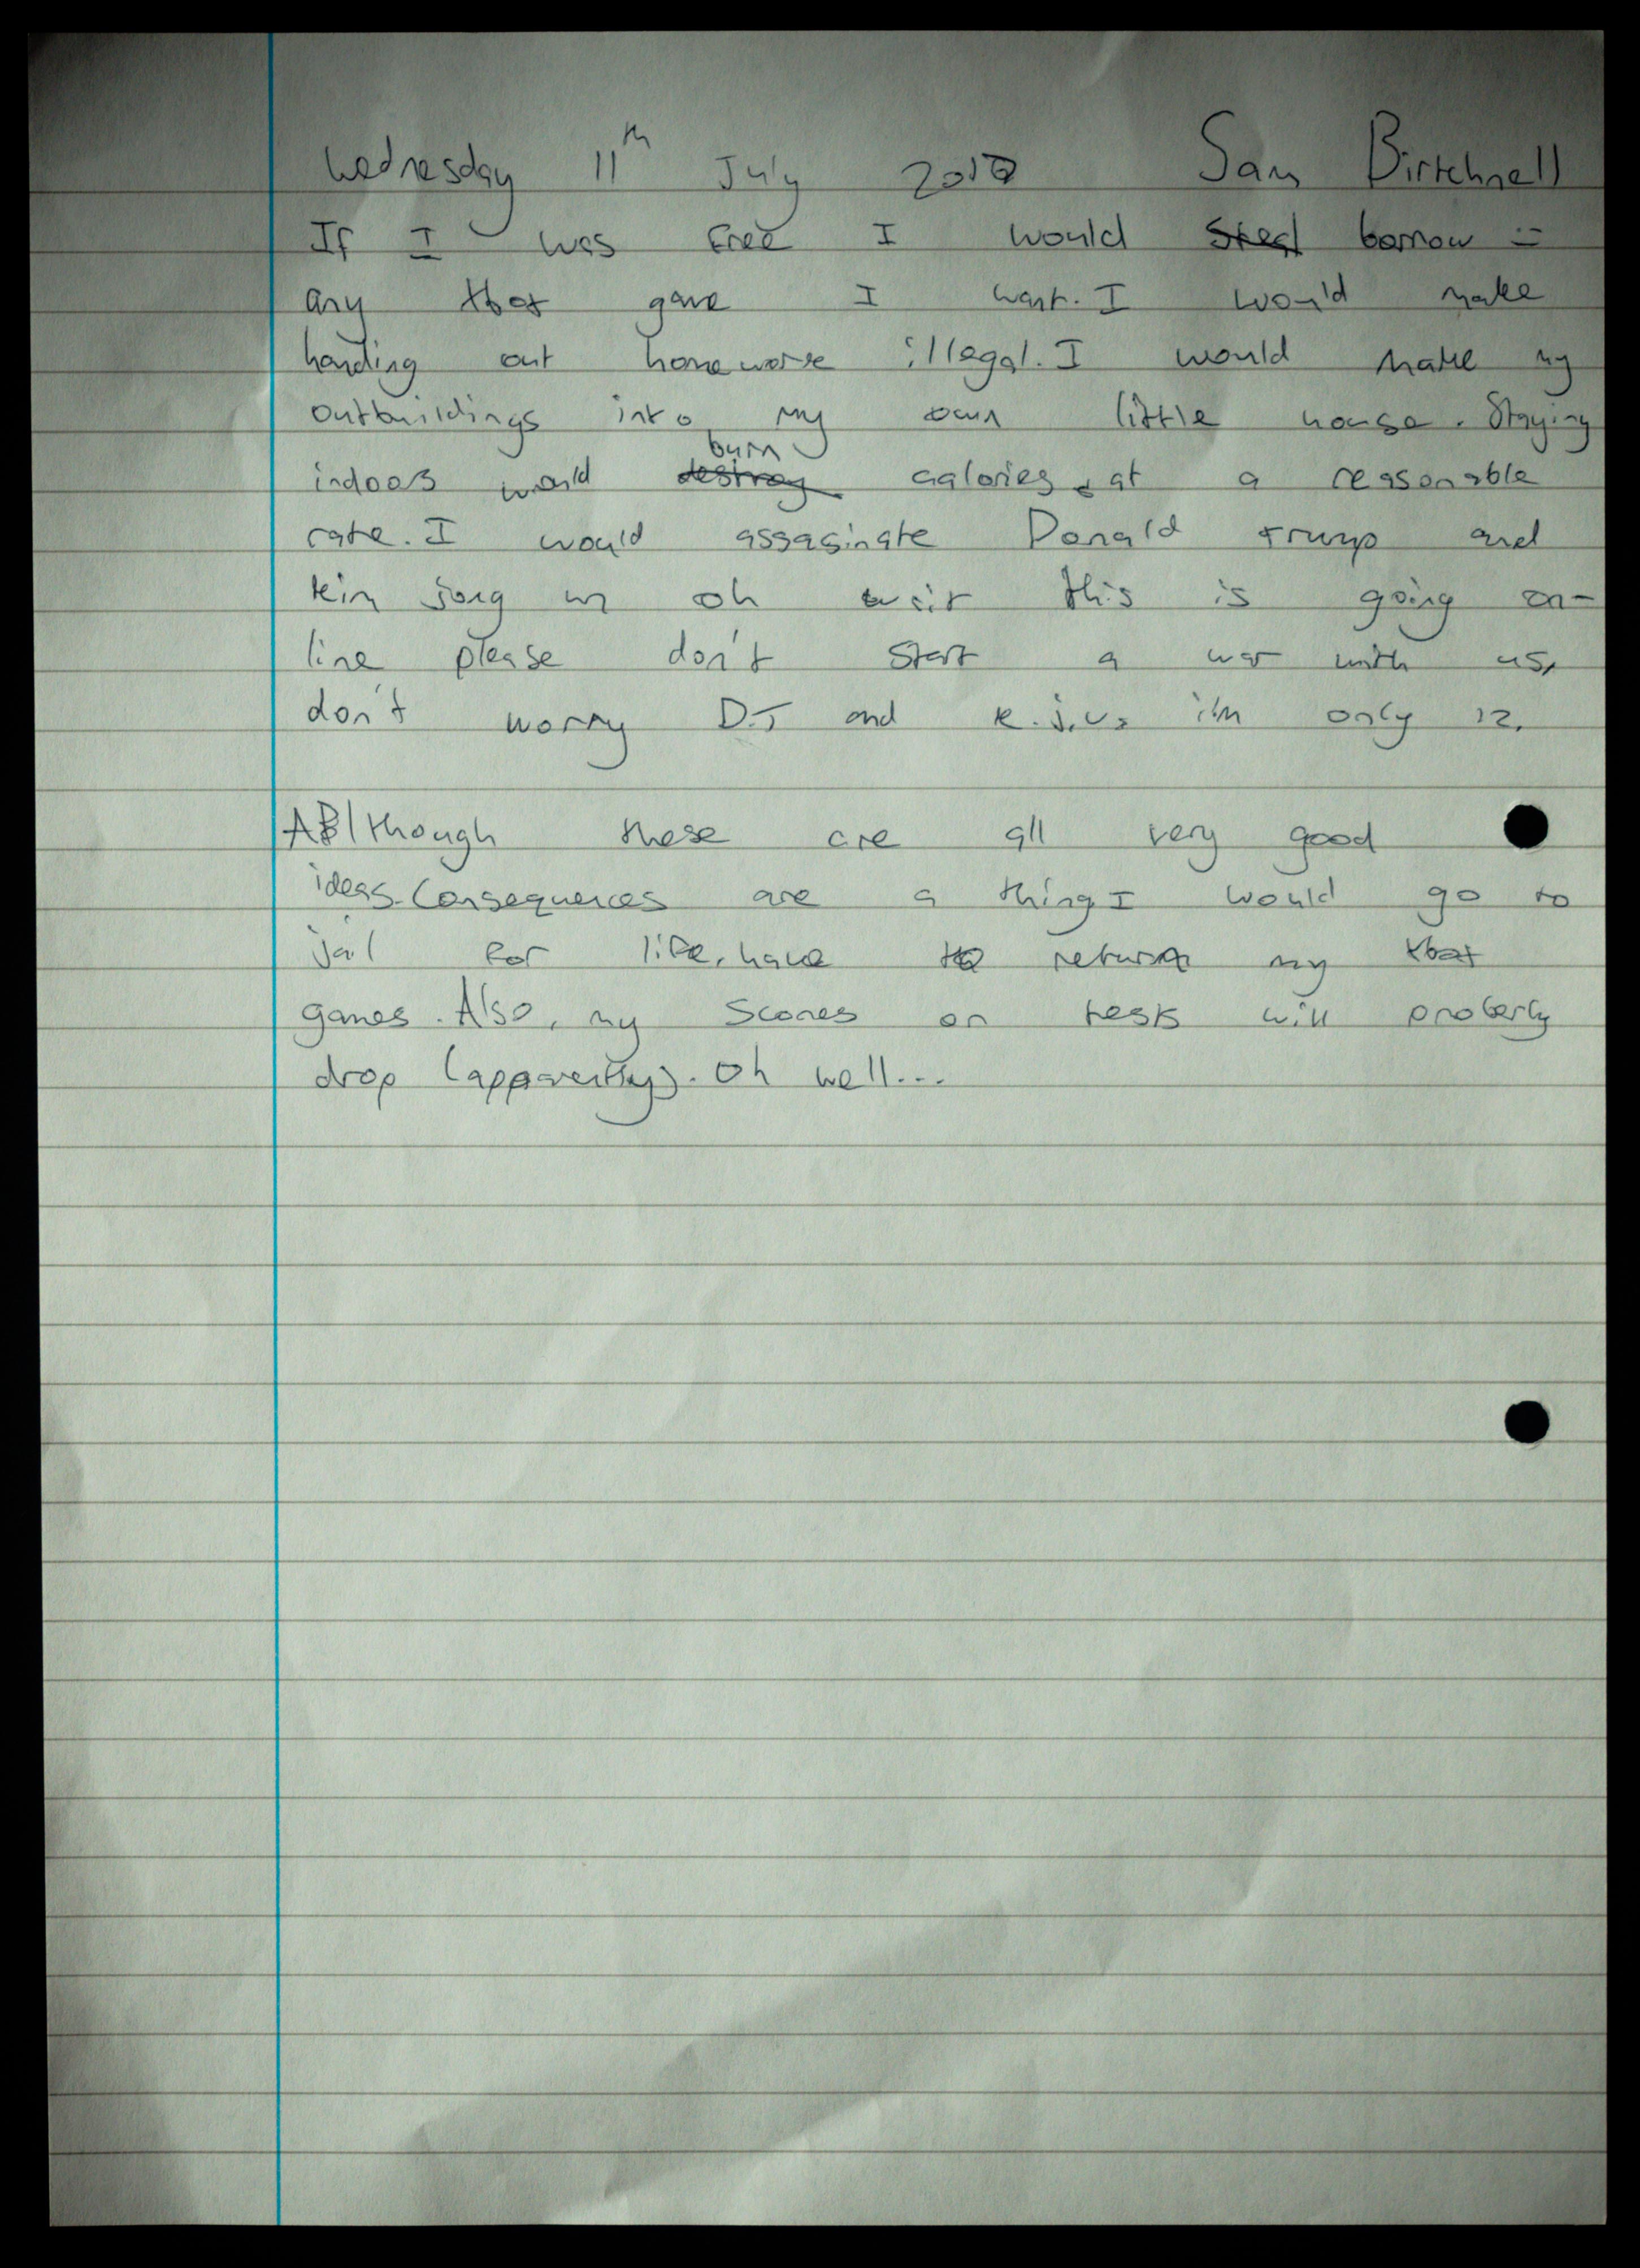 Wednesday 11th July 2018 Sam Birtchnell
If I was free I would steal borrow -
any xbox game I want. I would make
handing out homework illegal. I would make my
outbuildings into my own little house. Staying
burn
indoors would destroy calories at a reasonable
rate. I would assasinate Donald trump and
kim jong un oh wait this is going on-
line please don't start a war with us,
don't worry D.T and k.j.u. im only 12.
Although these are all very good
ideas. Consequences are a thing I would go to
jail for life, have to return my xbox
games. Also, my scores on tests will proberly
drop (apparently). Oh well...